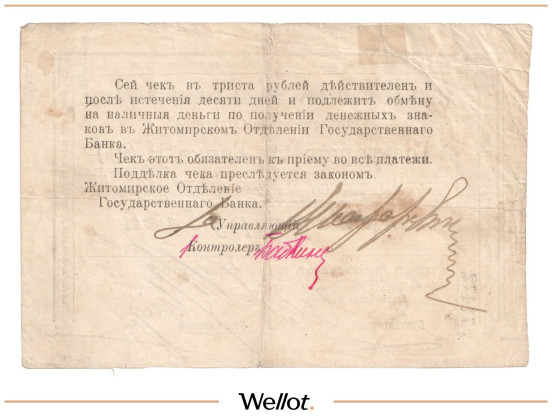 Сей чекъ въ триста рублей дѣйствителен и
послѣ истеченія десяти дней и подлежит обмѣну
на наличныя деньги по полученіи денежных зна-
ков въ Житомирском Отдѣленіи Государственнаго
Банка.
Чекъ этот обязателен къ пріему во всѣ платежи.
Поддѣлка чека преслѣдуется законом.
Житомирское Отдѣленіе
Государственнаго Банка.
Управляющій
Контролеръ
Wellot.